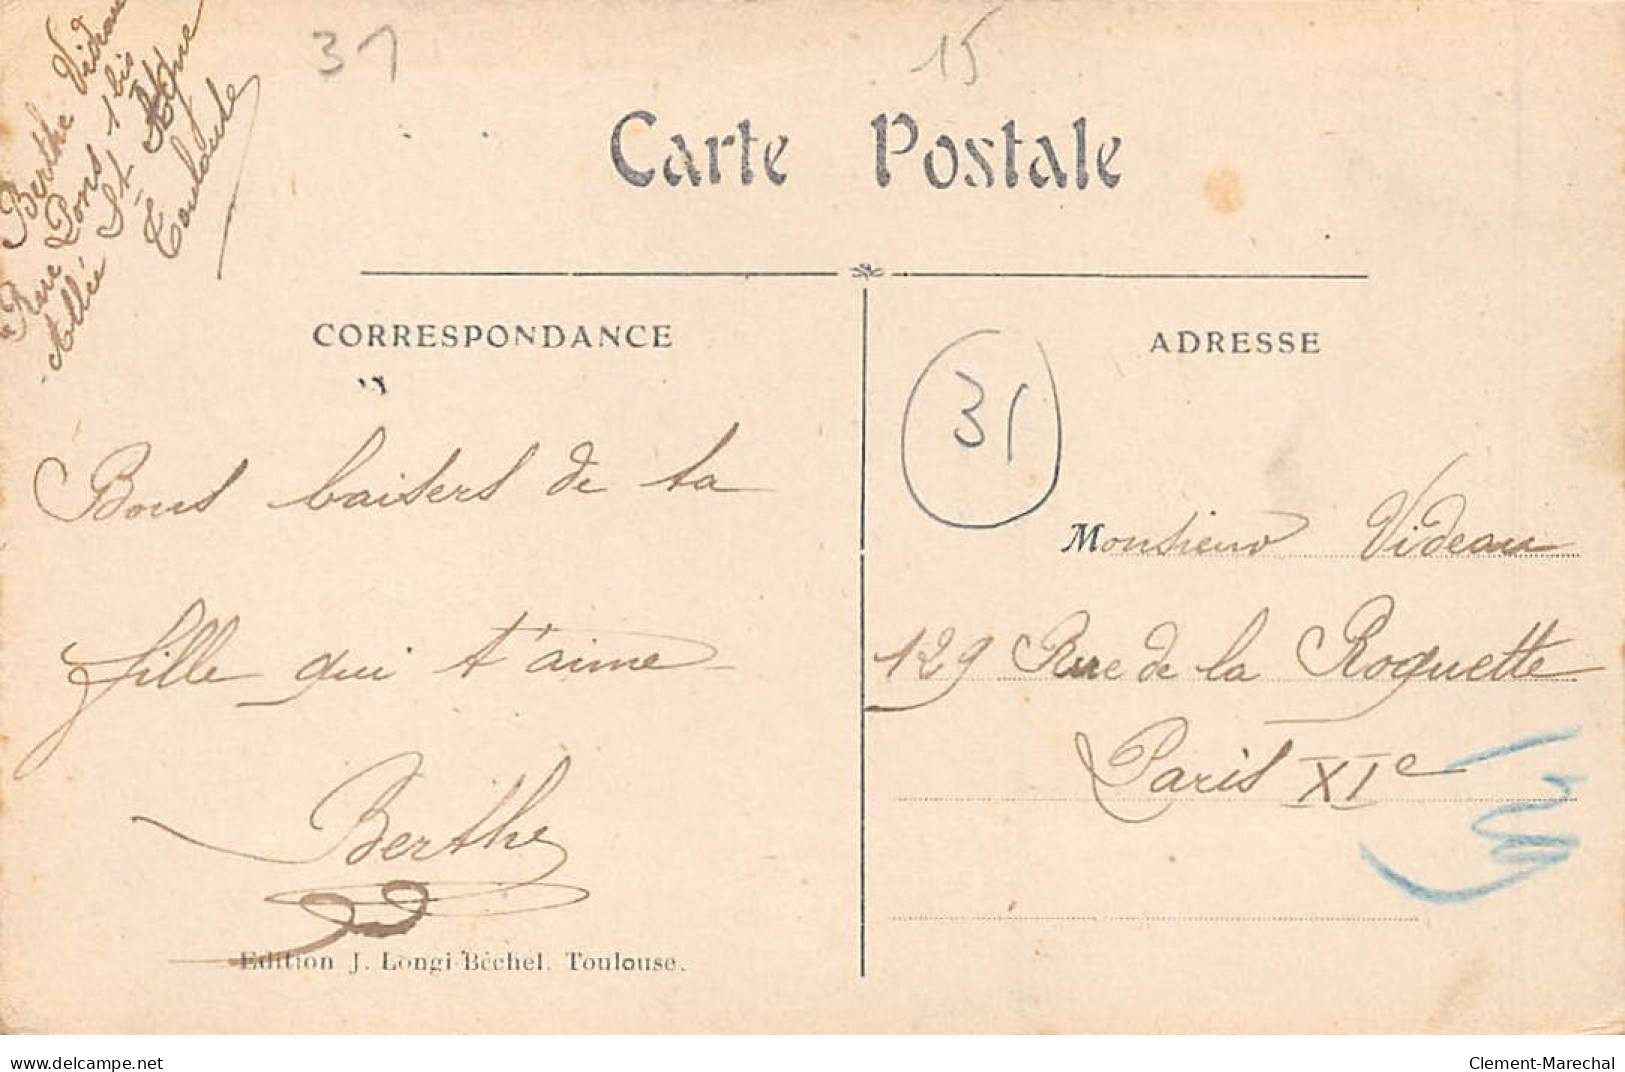 Berthe Videau
Rue Pons 1 bis
Allée St Agne
Toulouse
31
15
Carte Postale
CORRESPONDANCE
Bons baisers de ta
fille qui t'aime
Berthe
Edition J. Longi-Bèchel. Toulouse.
ADRESSE
31
Monsieur Videau
129 Rue de la Roquette
Paris XIe
delcampe.net
Clement-Marechal